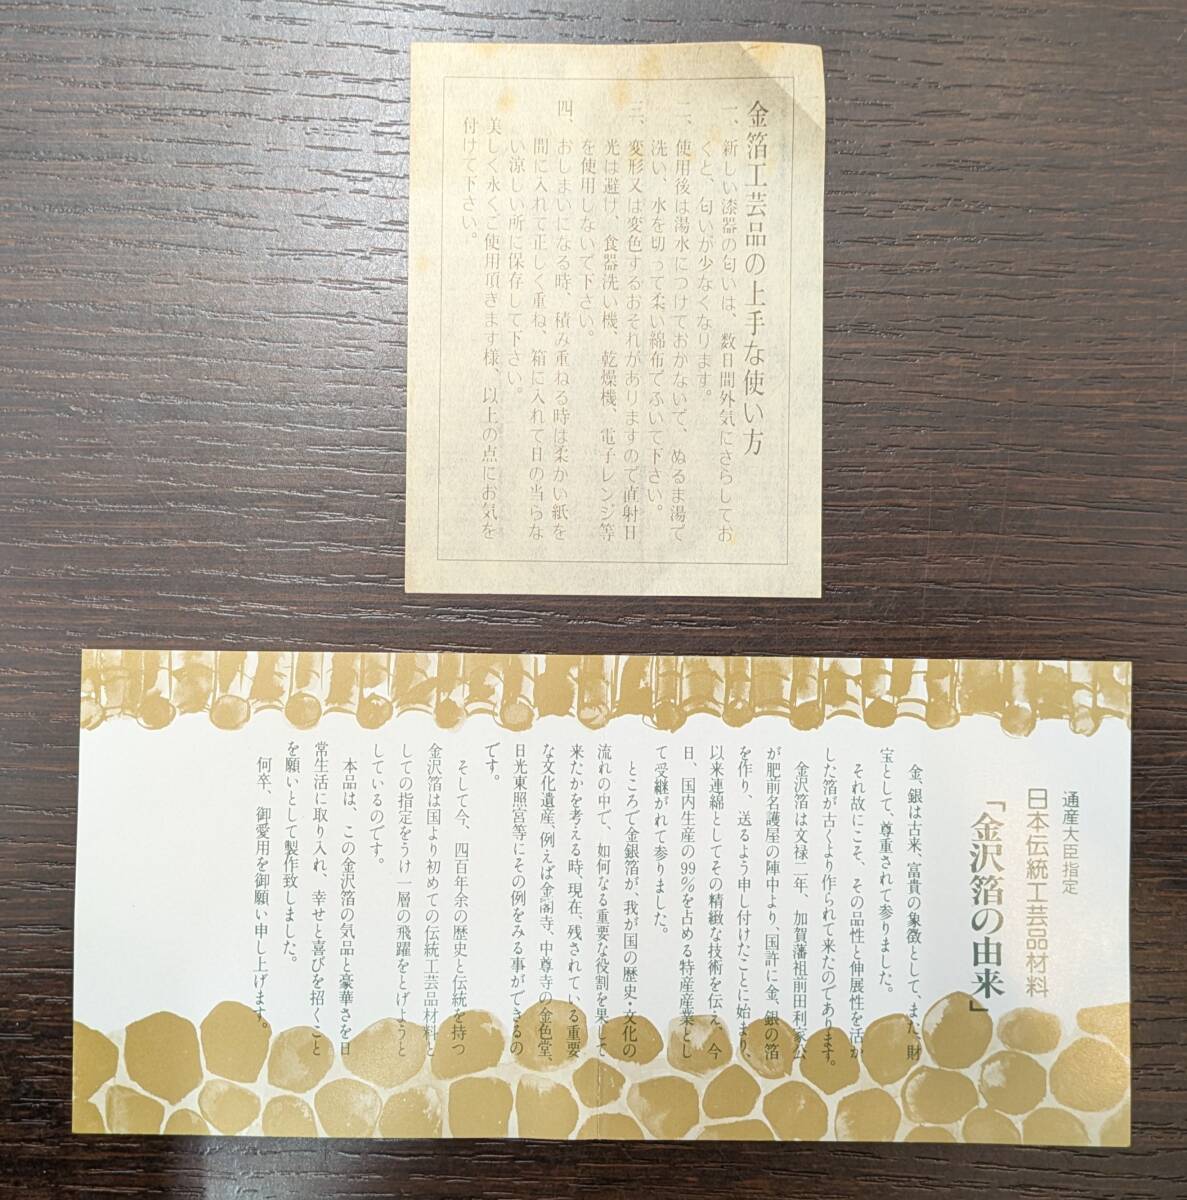 金箔工芸品の上手な使い方
一、新しい漆器の匂いは、数日間外気にさらしてお
くと、匂いが少なくなります。
二、使用後は湯水につけておかないで、ぬるま湯で
洗い、水を切って柔い綿布でふいて下さい。
三、変形又は変色するおそれがありますので直射日
光は避け、食器洗い機、乾燥機、電子レンジ等
を使用しないで下さい。
四、おしまいになる時、積み重ねる時は柔かい紙を
間に入れて正しく重ね、箱に入れて日の当らな
い涼しい所に保存して下さい。
美しく永くご使用頂きます様、以上の点にお気を
付けて下さい。
通産大臣指定
日本伝統工芸品材料
「金沢箔の由来」
金、銀は古来、富貴の象徴として、また、財
宝として、尊重されて参りました。
それ故にこそ、その品性と伸展性を活か
した箔が古くより作られて来たのであります。
金沢箔は文禄二年、加賀藩祖前田利家公
が肥前名護屋の陣中より、国許に金、銀の箔
を作り、送るよう申し付けたことに始まり、
以来連綿としてその精緻な技術を伝え、今
日、国内生産の99%を占める特産産業とし
て受継がれて参りました。
ところで金銀箔が、我が国の歴史・文化の
流れの中で、如何なる重要な役割を果して
来たかを考える時、現在、残されている重要
な文化遺産、例えば金閣寺、中尊寺の金色堂、
日光東照宮等にその例をみる事ができるの
です。
そして今、四百年余の歴史と伝統を持つ
金沢箔は国より初めての伝統工芸品材料と
しての指定をうけ一層の飛躍をとげようと
しているのです。
本品は、この金沢箔の気品と豪華さを日
常生活に取り入れ、幸せと喜びを招くこと
を願いとして製作致しました。
何卒、御愛用を御願い申し上げます。